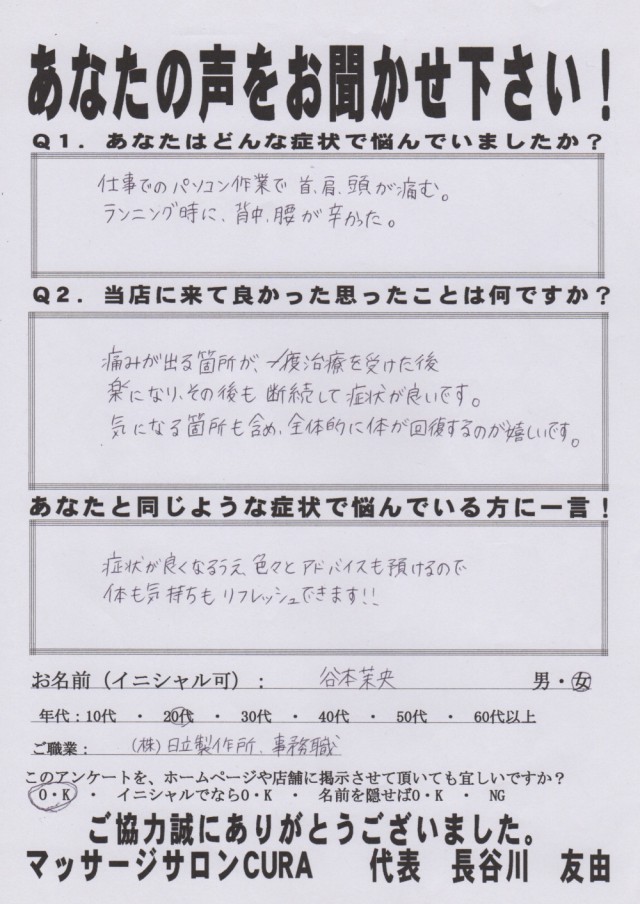 あなたの声をお聞かせ下さい！
Q1．あなたはどんな症状で悩んでいましたか？
仕事でのパソコン作業で首、肩、頭が痛む。
ランニング時に、背中、腰が辛かった。
Q2．当店に来て良かった思ったことは何ですか？
痛みが出る箇所が、一度治療を受けた後
楽になり、その後も断続して症状が良いです。
気になる箇所も含め、全体的に体が回復するのが嬉しいです。
あなたと同じような症状で悩んでいる方に一言！
症状が良くなるうえ、色々とアドバイスも預けるので
体も気持ちもリフレッシュできます!!
お名前（イニシャル可）： 谷本茉央 男・女
年代：10代 ・ 20代 ・ 30代 ・ 40代 ・ 50代 ・ 60代以上
ご職業： （株）日立製作所、事務職
このアンケートを、ホームページや店舗に掲示させて頂いても宜しいですか？
O・K ・ イニシャルでならO・K ・ 名前を隠せばO・K ・ NG
ご協力誠にありがとうございました。
マッサージサロンCURA 代表 長谷川 友由